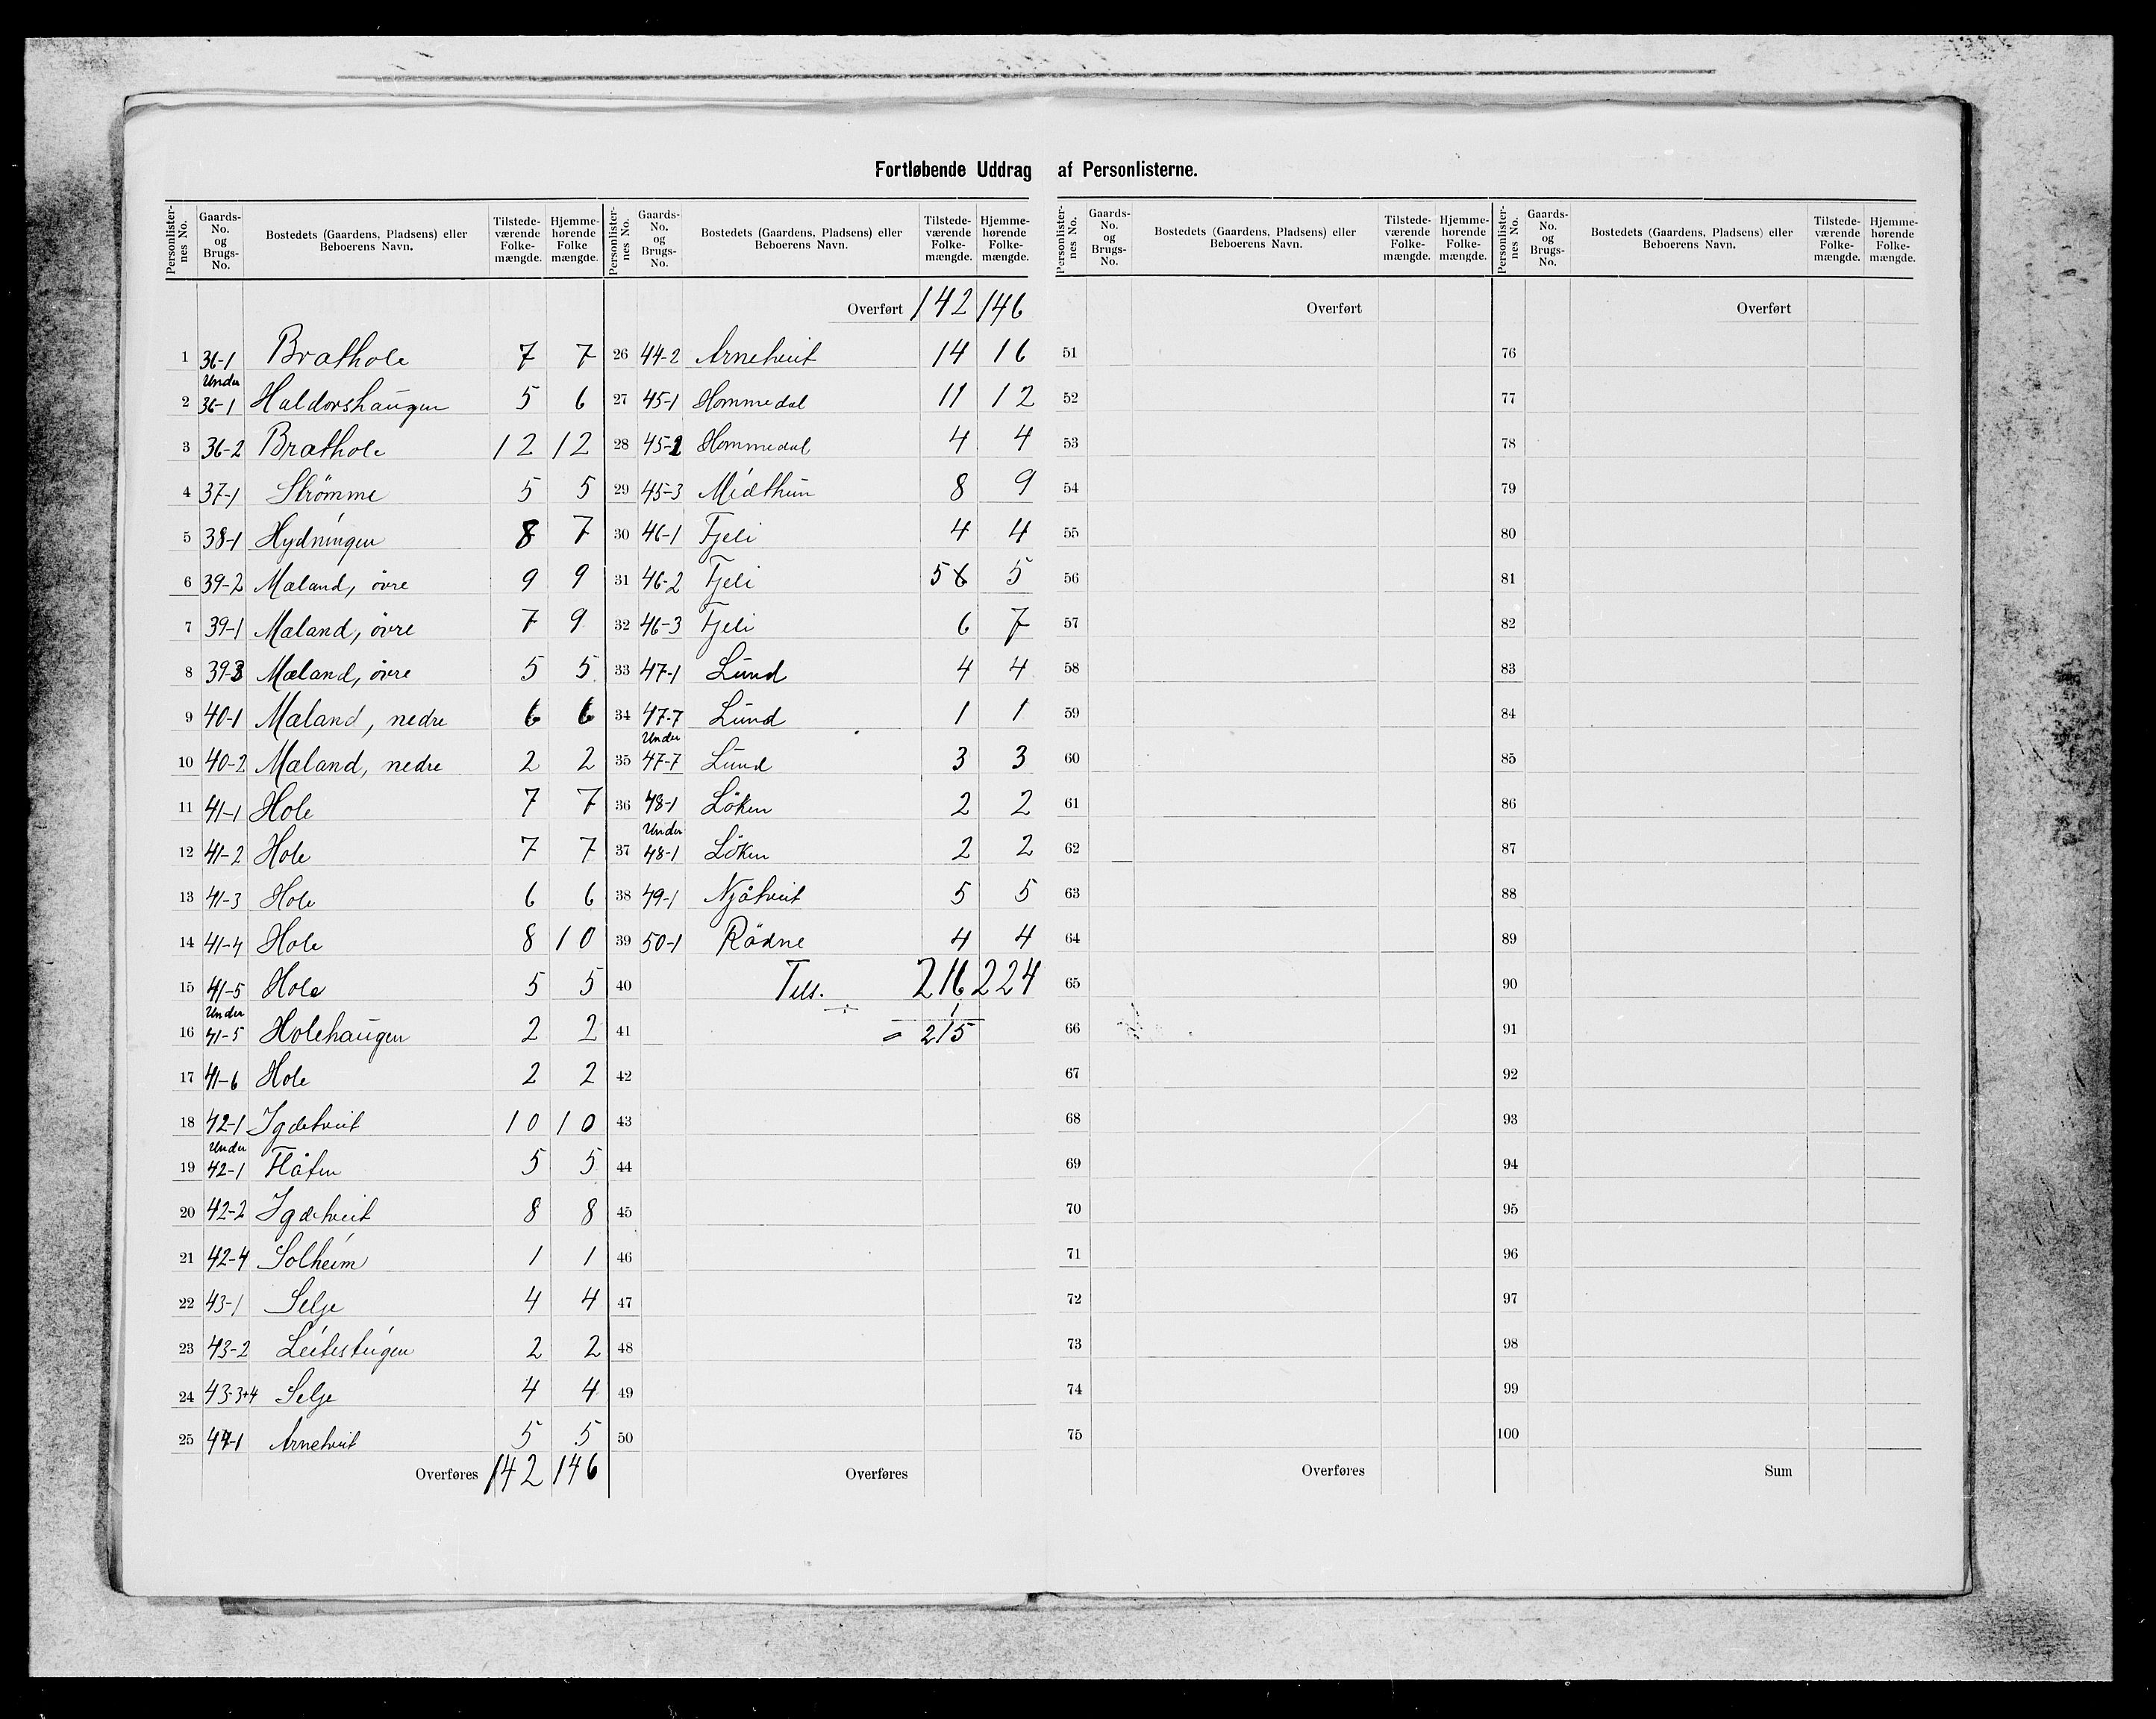 Fortløbende Uddrag af Personlisterne.
Personlister-nes No. Gaards-No. og Brugs-No. Bostedets (Gaardens, Pladsens) eller Beboerens Navn. Tilstede-værende Folke-mængde. Hjemme-hørende Folke mængde.
1 36-1 Brathole 7 7
2 Under 36-1 Haldorshaugen 5 6
3 36-2 Brathole 12 12
4 37-1 Strömme 5 5
5 38-1 Hydningen 8 7
6 39-2 Mæland, övre 9 9
7 39-1 Mæland, övre 7 9
8 39-3 Mæland, övre 5 5
9 40-1 Mæland, nedre 6 6
10 40-2 Mæland, nedre 2 2
11 41-1 Hole 7 7
12 41-2 Hole 7 7
13 41-3 Hole 6 6
14 41-4 Hole 8 10
15 41-5 Hole 5 5
16 Under 41-5 Holehaugen 2 2
17 41-6 Hole 2 2
18 42-1 Igdetveit 10 10
19 Under 42-1 Flåten 5 5
20 42-2 Igdetveit 8 8
21 42-4 Solheim 1 1
22 43-1 Selje 4 4
23 43-2 Leitestugen 2 2
24 43-3+4 Selje 4 4
25 44-1 Arnetveit 5 5
Overføres 142 146
Personlister-nes No. Gaards-No. og Brugs-No. Bostedets (Gaardens, Pladsens) eller Beboerens Navn. Tilstede-værende Folke-mængde. Hjemme-hørende Folke-mængde.
Overført 142 146
26 44-2 Arnetveit 14 16
27 45-1 Hommedal 11 12
28 45-2 Hommedal 4 4
29 45-3 Midthun 8 9
30 46-1 Fjeli 4 4
31 46-2 Fjeli 5 6 5
32 46-3 Fjeli 6 7
33 47-1 Lund 4 4
34 47-7 Lund 1 1
35 Under 47-7 Lund 3 3
36 48-1 Löken 2 2
37 Under 48-1 Löken 2 2
38 49-1 Njåtveit 5 5
39 50-1 Rödne 4 4
40 Tils. 216 224
÷ 1
41 = 215
42
43
44
45
46
47
48
49
50
Overføres
Personlister-nes No. Gaards-No. og Brugs-No. Bostedets (Gaardens, Pladsens) eller Beboerens Navn. Tilstede-værende Folke-mængde. Hjemme-hørende Folke-mængde.
Overført
51
52
53
54
55
56
57
58
59
60
61
62
63
64
65
66
67
68
69
70
71
72
73
74
75
Overføres
Personlister-nes No. Gaards-No. og Brugs-No. Bostedets (Gaardens, Pladsens) eller Beboerens Navn. Tilstede-værende Folke-mængde. Hjemme-hørende Folke-mængde.
Overført
76
77
78
79
80
81
82
83
84
85
86
87
88
89
90
91
92
93
94
95
96
97
98
99
100
Sum